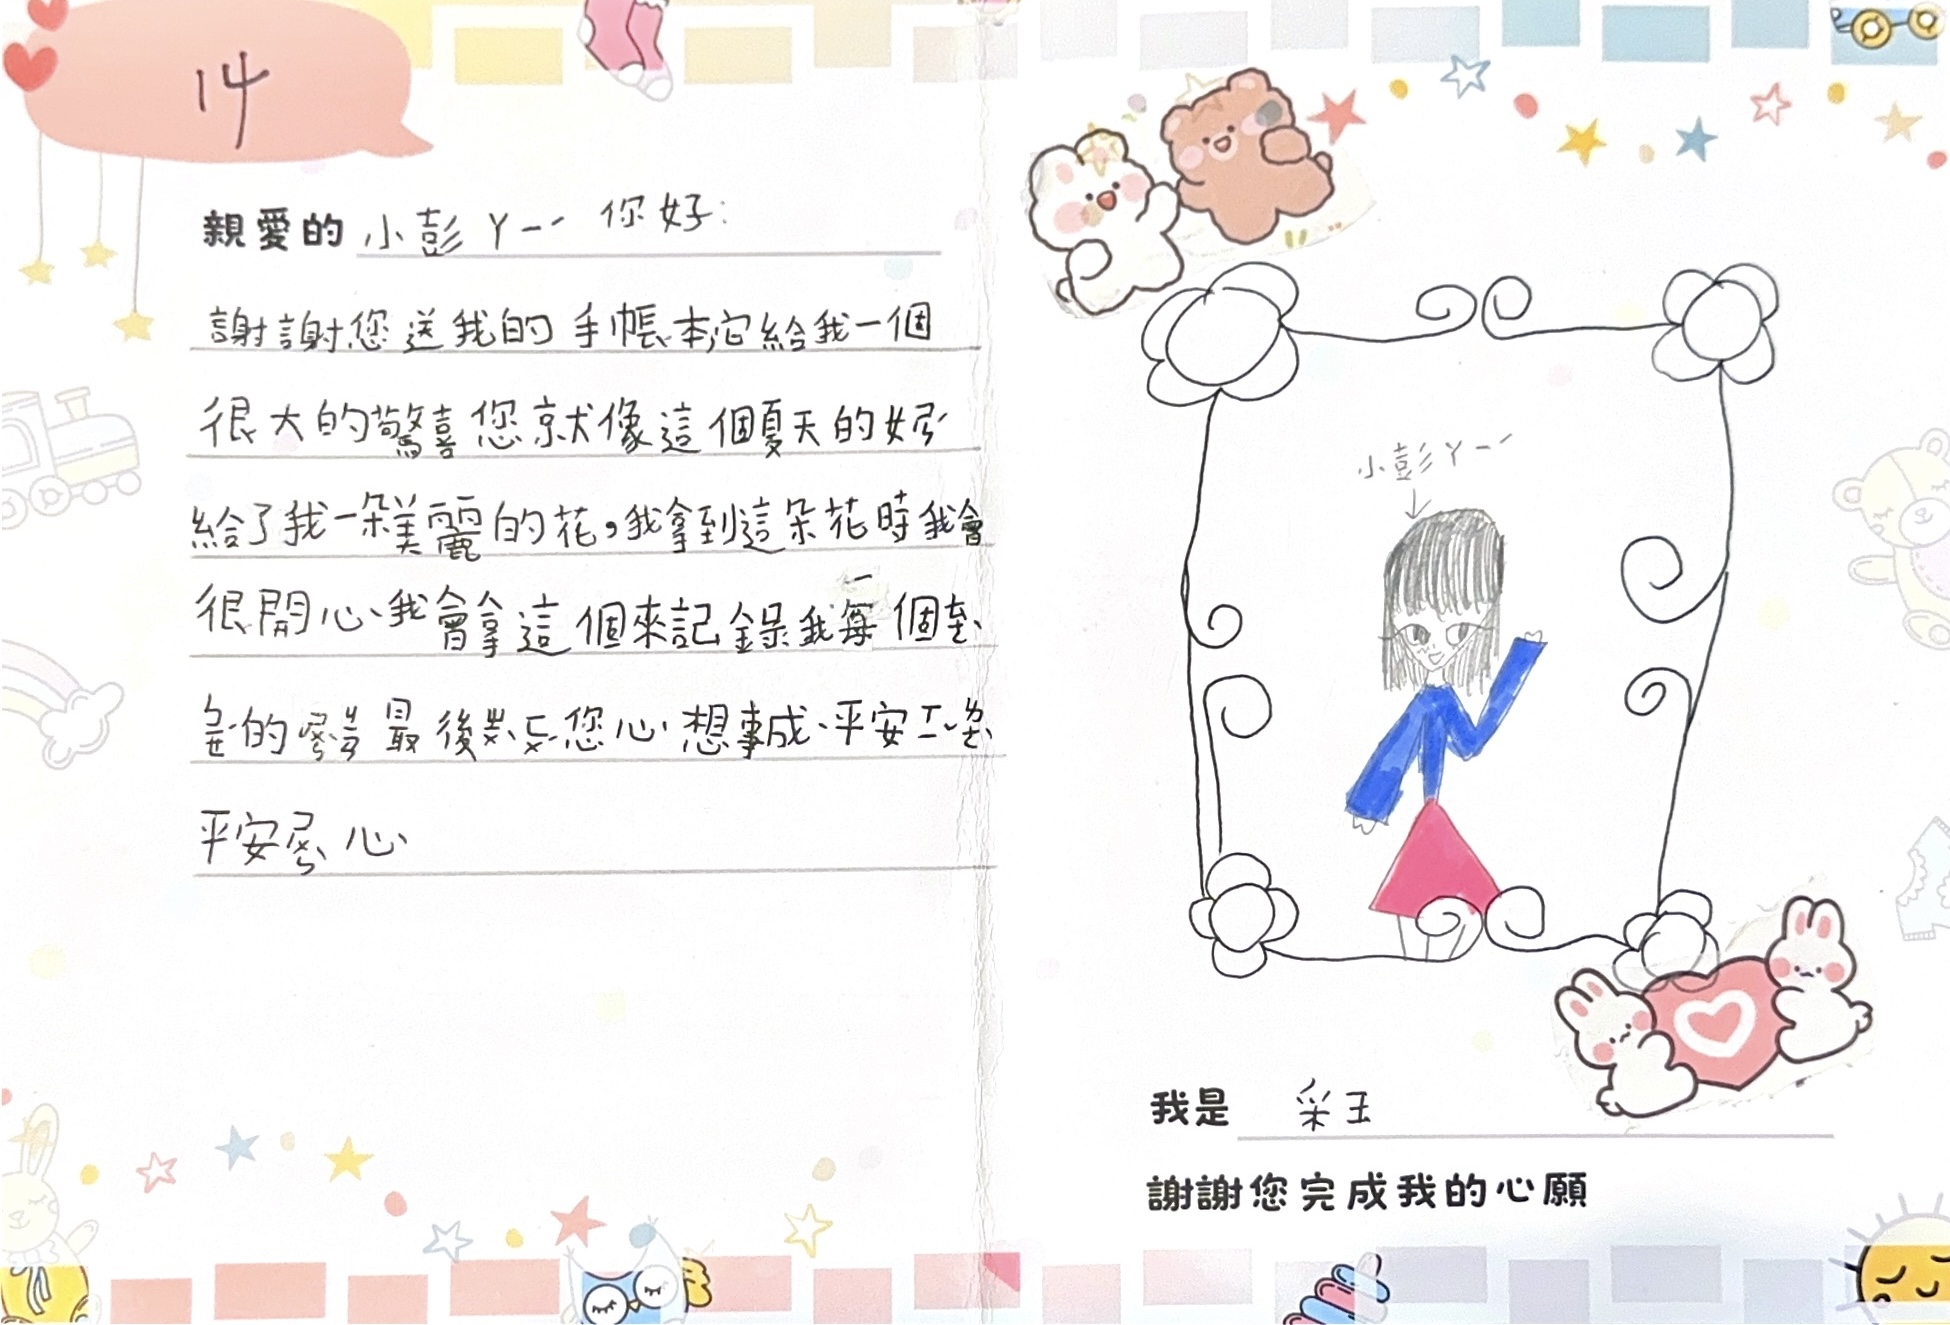 14
親愛的 小彭ㄚㄧˊ 你好:
謝謝您送我的手帳本它給我一個
很大的驚喜您就像這個夏天的
給了我一朵美麗的花，我拿到這朵花時我會
很開心我會拿這個來記錄我每一個
的 最後 您心想事成、平安
平安 心
小彭ㄚㄧˊ
我是 采玉
謝謝您完成我的心願